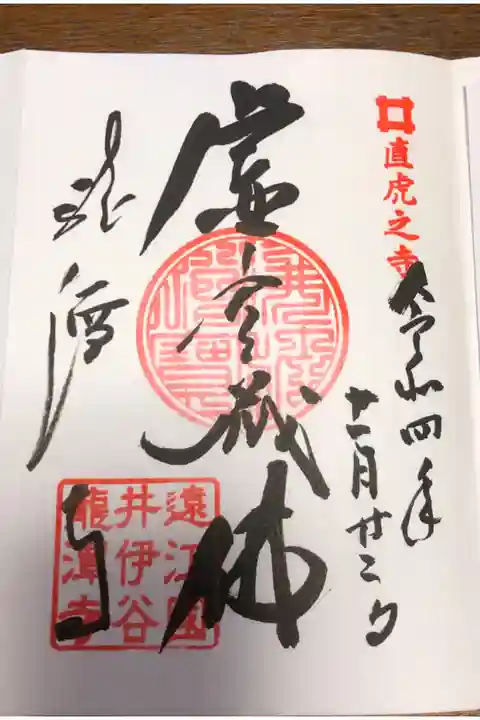 直虎之寺
令和四年
十一月廿二日
虚空蔵佛
遠江國
井伊谷
龍潭寺
龍潭寺